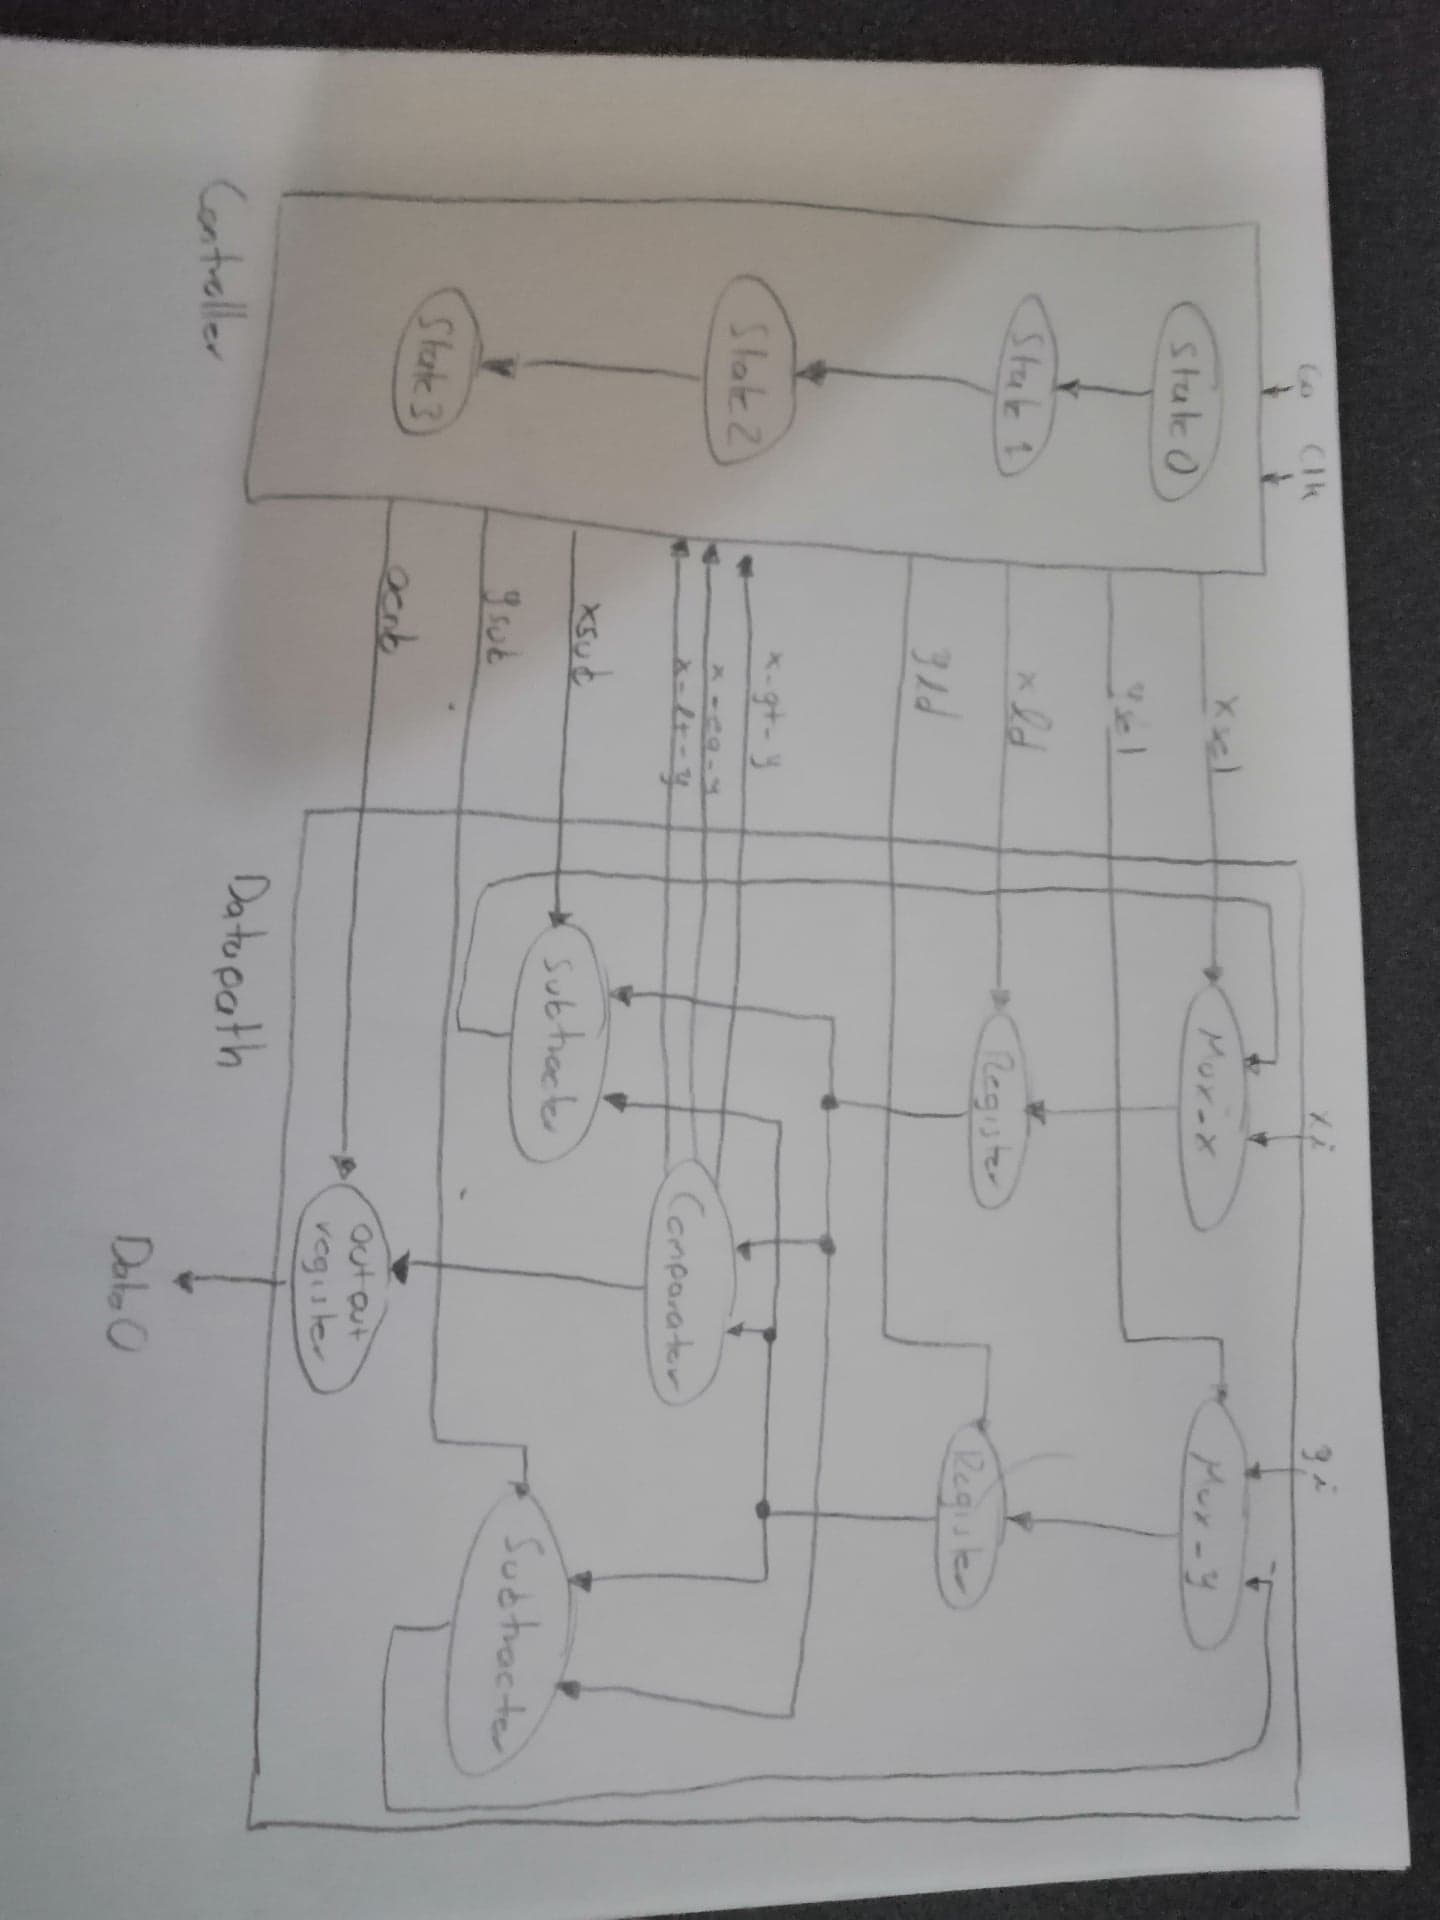 Go
Clk
xi
yi
State 0
State 1
State 2
State 3
Controller
xsel
ysel
xld
yld
x-gt-y
x-eq-y
x-lt-y
xsub
ysub
Mux-x
Mux-y
Register
Register
Comparator
Subtracter
Subtracter
output
register
Datapath
DataO